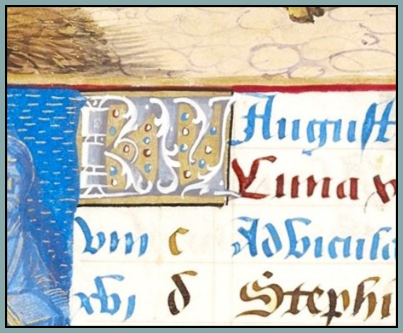 KL August
Luna x
viii c Ad vincula
xvi d Stephi